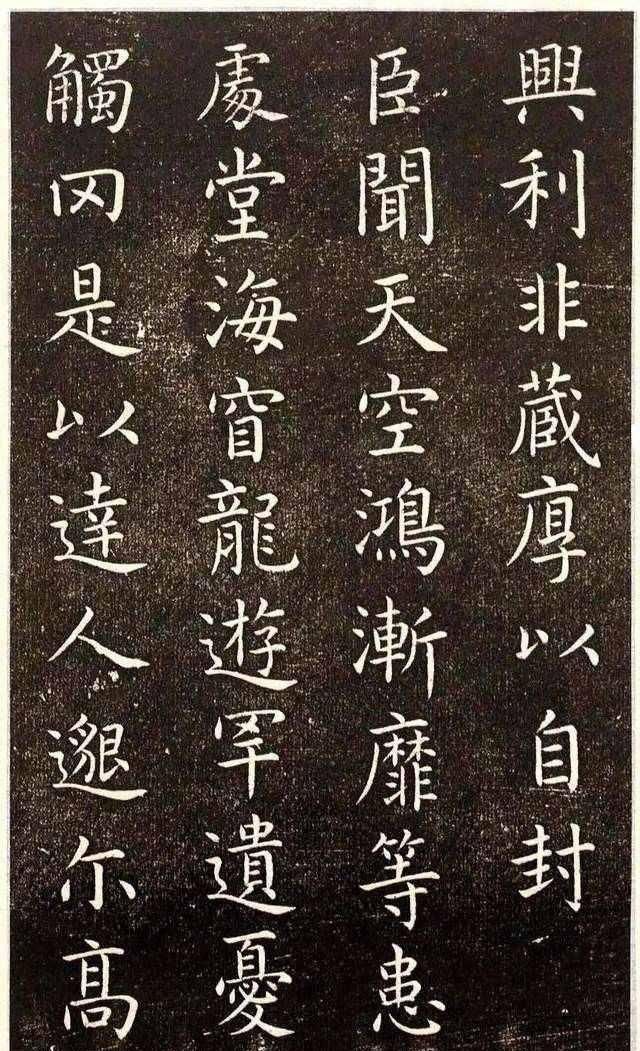 興利非蔵厚以自封
臣聞天空鴻漸靡等患
處堂海窅龍遊罕遺憂
觸罔是以達人邈尓高